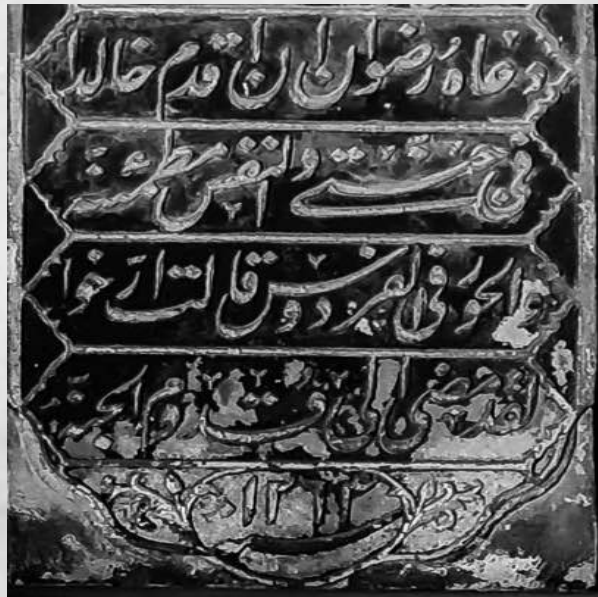 دعاه رضوان ان اقدم خالدا
في جنتي والنفس مطمئنة
والحور في الفردوس قالت ارخوا
لقد مضى الجنة